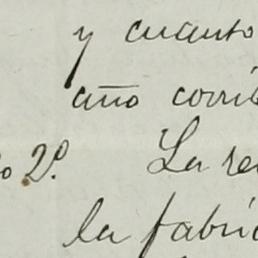 y cuanto
año corri
o 2º La re
la fabri